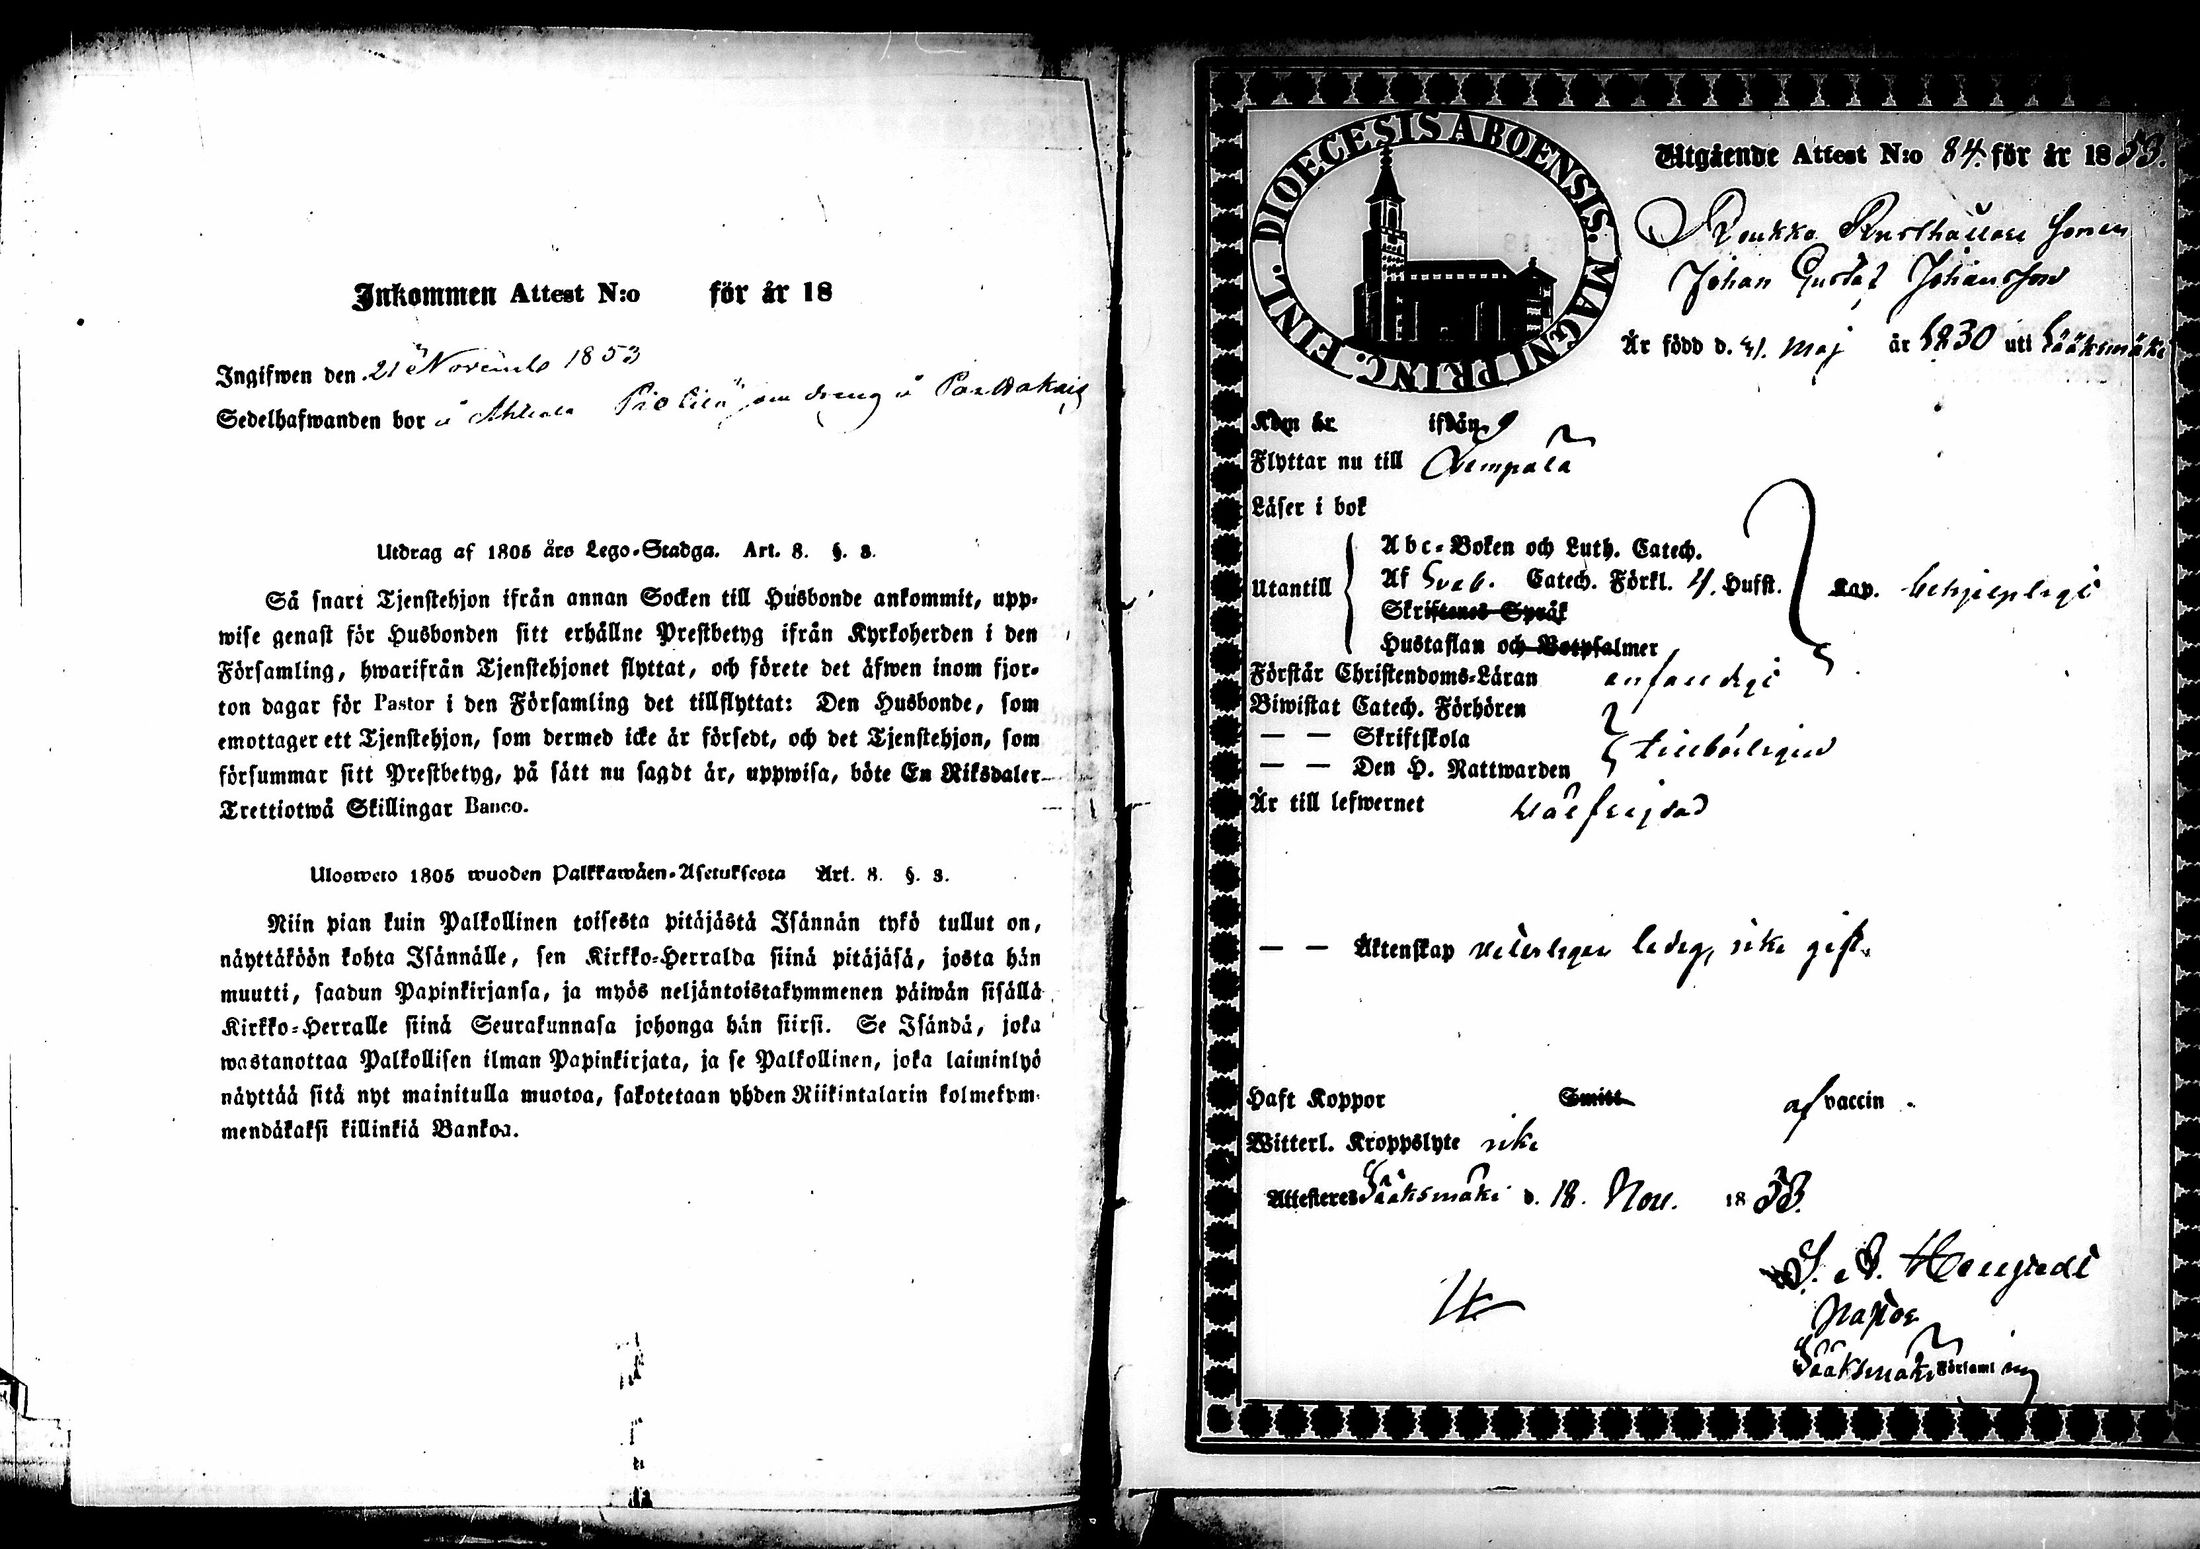 Inkommen Attest N:o för år 18
Ingifwen den 21 Novemb 1853
Sedelhafwanden bor å Ahtiala som dreng å
Utdrag af 1805 års Lego-Stadga. Art. 8. §. 3.
Så snart Tjenstehjon ifrån annan Socken till Husbonde ankommit, upp-
wise genast för Husbonden sitt erhållne Prestbetyg ifrån Kyrkoherden i den
Församling, hwarifrån Tjenstehjonet flyttat, och förete det äfwen inom fjor-
ton dagar för Pastor i den Församling det tillflyttat: Den Husbonde, som
emottager ett Tjenstehjon, som dermed icke är försedt, och det Tjenstehjon, som
försummar sitt Prestbetyg, på sätt nu sagdt är, uppwisa, böte En Riksdaler
Trettiotwå Skillingar Banco.
Ulosweto 1805 wuoden Palkkawäen-Asetuksesta Art. 8. §. 3.
Niin pian kuin Palkollinen toisesta pitäjästä Isännän tykö tullut on,
näyttäköön kohta Isännälle, sen Kirkko-Herralda siinä pitäjäsä, josta hän
muutti, saadun Papinkirjansa, ja myös neljäntoistakymmenen päiwän sisällä
Kirkko-Herralle siinä Seurakunnasa johonga hän siirsi. Se Isändä, joka
wastanottaa Palkollisen ilman Papinkirjata, ja se Palkollinen, joka laiminlyö
näyttää sitä nyt mainitulla muotoa, sakotetaan yhden Riikintalarin kolmekym-
mendäkaksi killinkiä Bankoa.
DIOECESIS ABOENSIS. MAGNI PRINC. FINL.
Utgående Attest N:o 84. för år 1853.
Roukko Rusthållare Sonen
Johan Gustaf Johansson
Är född d. 31. Maj år 1830 uti Sääksmäki
Kom år ifrån
Flyttar nu till Lempälä
Läser i bok
Utantill
Abc-Boken och Luth. Catech.
Af Sveb. Catech. Förkl. 4. Hufst.
Skriftenes Språk
Hustaflan och Botpsalmer
Kap. behjelpligt
Förstår Christendoms-Läran enfaldigt
Biwistat Catech. Förhören
— — Skriftskola
— — Den H. Nattwarden
tillbörligen
Är till lefwernet wälfrejdad
— — Äktenskap veterligen ledig, icke gift.
Haft Koppor Smitt af vaccin
Witterl. Kroppslyte icke
Attesteres Sääksmäki d. 18. Nov. 1853.
Sääksmäki Församling